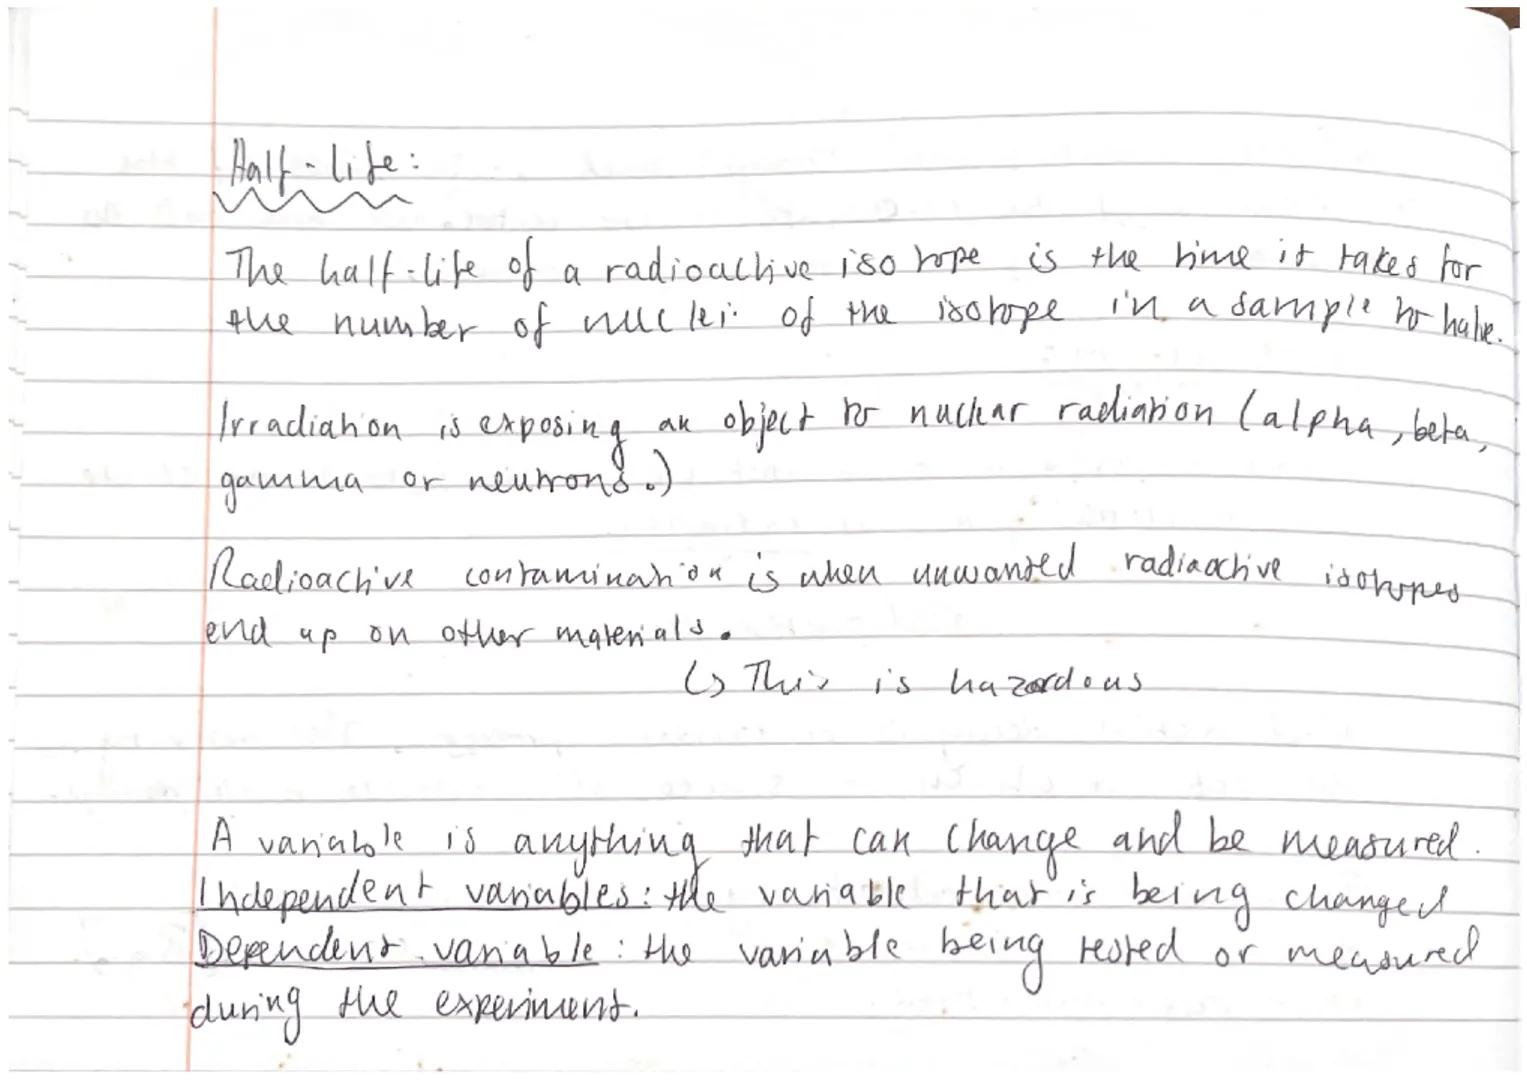 Half-life:
The half-life of a radioactive isotope is the time it takes for
the number of nuclei of the isotope in a sample to halve.
Irradiation is exposing an object to nuclear radiation (alpha, beta,
gamma or neutrons.)
Radioactive contamination is when unwanted radioactive isotopes
end up on other materials.
↳ This is hazardous
A variable is anything that can change and be measured.
Independent variables: the variable that is being changed
Dependent variable: the variable being tested or measured
during the experiment.